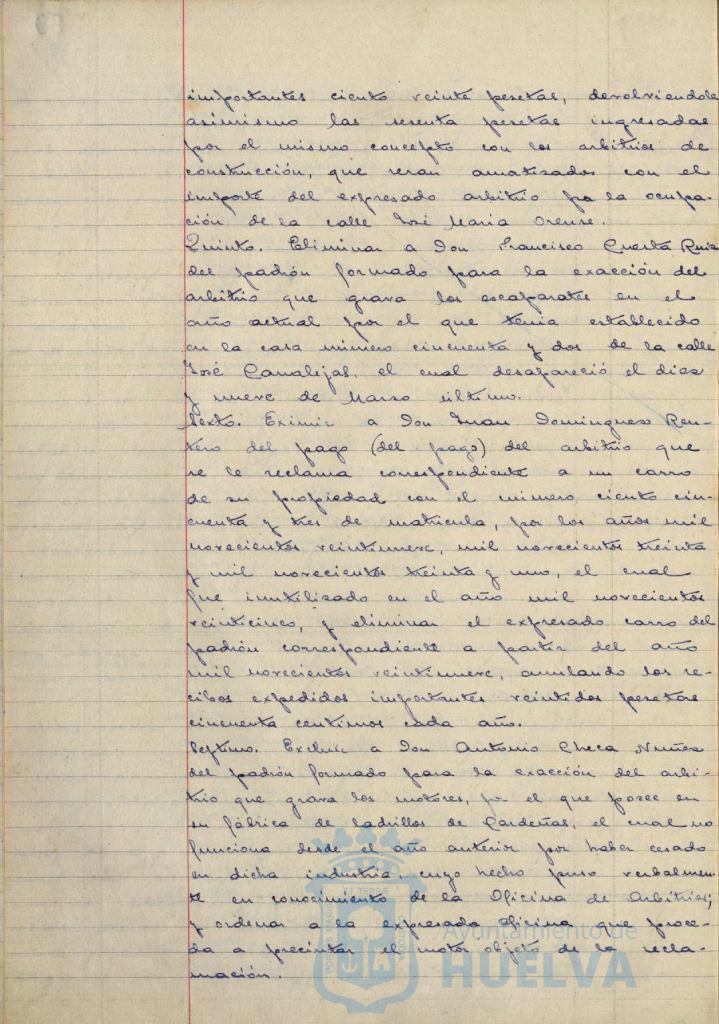 importantes ciento veinte pesetas, devolviendole
asimismo las sesenta pesetas ingresadas
por el mismo concepto con los arbitrios de
construcción, que seran amatizados con el
importe del expresado arbitrio pa la ocupa-
ción de la calle José Maria Orense.
Quinto. Eliminar a Don Francisco Cuesta Ruiz
del padrón formado para la exacción del
arbitrio que grava los escaparates en el
año actual por el que tenia establecido
en la casa número cincuenta y dos de la calle
José Canalejas, el cual desapareció el diez
y nueve de Marzo último.
Sexto. Eximir a Don Juan Dominguez Ren-
tero del pago (del pago) del arbitrio que
se le reclama correspondiente a un carro
de su propiedad con el número ciento cin-
cuenta y tres de matricula, por los años mil
novecientos veintinueve, mil novecientos treinta
y mil novecientos treinta y uno, el cual
fue inutilizado en el año mil novecientos
veinticinco, y eliminar el expresado carro del
padrón correspondiente a partir del año
mil novecientos veintinueve, anulando los re-
cibos expedidos importantes veintidos pesetas
cincuenta centimos cada año.
Septimo. Excluir a Don Antonio Checa Nuñez
del padrón formado para la exacción del arbi-
trio que grava los motores, por el que posee en
su fábrica de ladrillos de Cardeñas, el cual no
funciona desde el año anterior por haber cesado
en dicha industria, cuyo hecho puso verbalmen-
te en conocimiento de la Oficina de Arbitrios;
y ordenar a la expresada oficina que proce-
da a precintar el motor objeto de la recla-
mación.
Ayuntamiento de
HUELVA